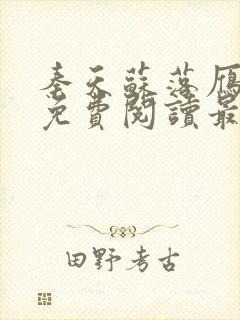 奉天蘇落雁
免費閱讀最
田野考古